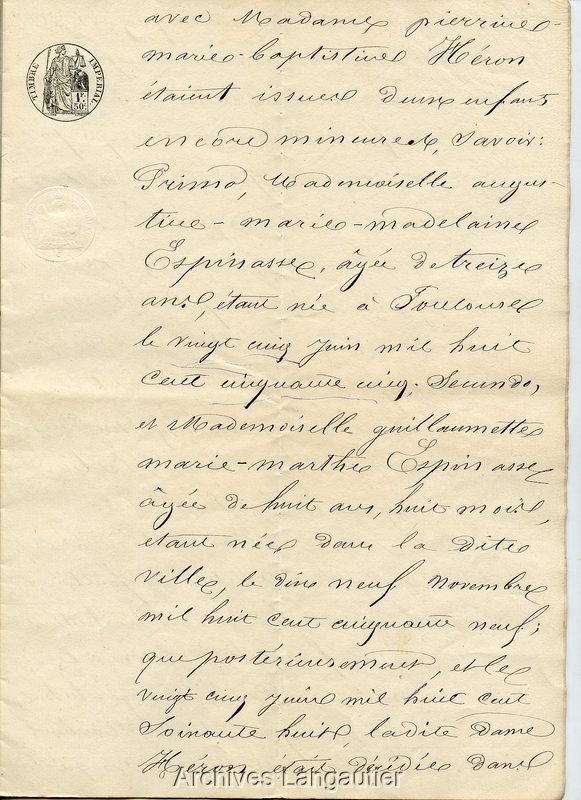 TIMBRE IMPERIAL
1F.
50c.
avec Madame pierrine-
marie-Baptistine Héron
étaient issues deux enfants
encore mineures, Savoir:
Primo, Mademoiselle augus-
tine-marie-madelaine
Espinasse, âgée de treize
ans, étant née à Toulouse
le vingt cinq juin mil huit
cent cinquante cinq; Secundo,
et Mademoiselle guillaumette
marie-marthe Espinasse
âgée de huit ans, huit mois,
etant née dans la dite
ville, le dix neuf novembre
mil huit cent cinquante neuf;
que postérieurement, et le
vingt cinq juin mil huit cent
Soixante huit, ladite dame
Héron, était décédée dans
Archives Langautier